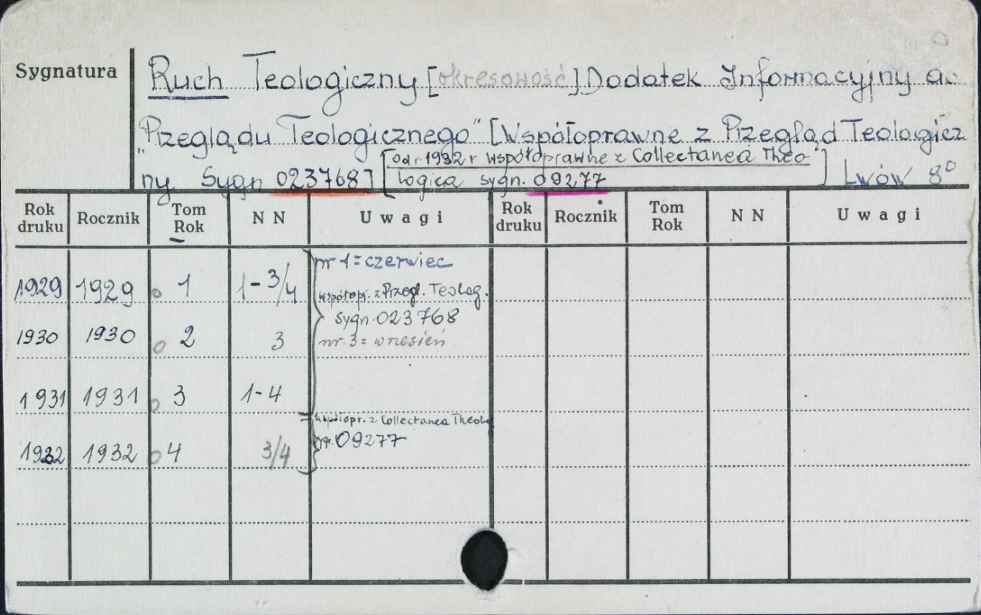 Sygnatura
Ruch Teologiczny [okresowość] Dodatek Informacyjny do
"Przeglądu Teologicznego" [Współoprawne z Przegląd Teologicz
[od r. 1932 r współoprawne z Collectanea Theo-
ny Sygn 023768] logica sygn. 09277] Lwów 8°
Rok druku Rocznik Tom Rok N N Uwagi Rok druku Rocznik Tom Rok N N Uwagi
nr 1 = czerwiec
1929 1929 1 1-3/4 współopr. z Przegl. Teolog.
sygn. 023768
1930 1930 2 3 nr. 3 = wrzesień
1931 1931 3 1-4
współopr. z Collectanea Theol.
1932 1932 4 3/4 09277